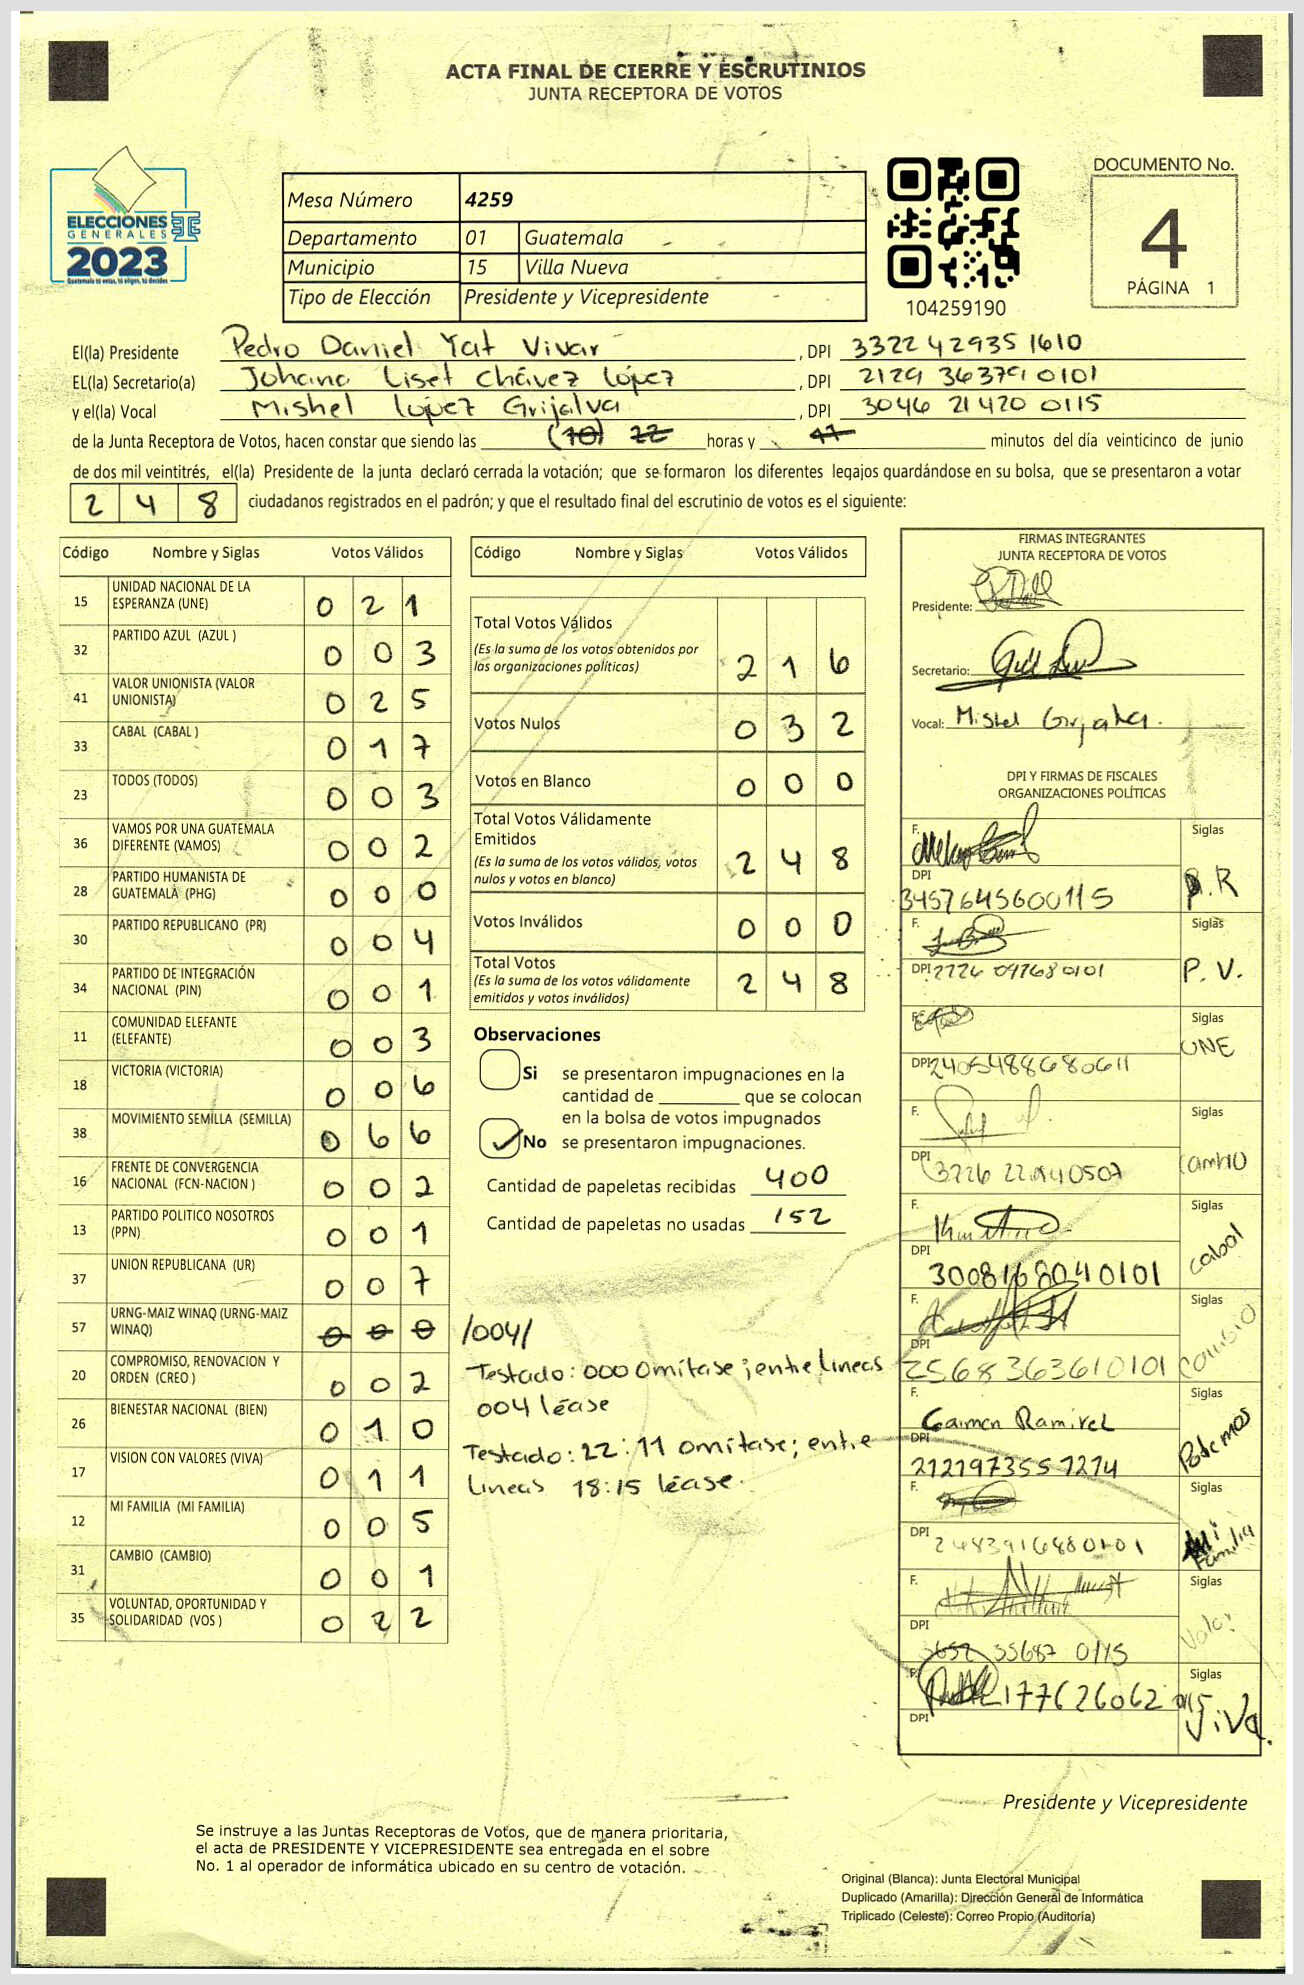 ACTA FINAL DE CIERRE Y ESCRUTINIOS
JUNTA RECEPTORA DE VOTOS
ELECCIONES
GENERALES
2023
Guatemala tú votas, tú eliges, tú decides
Mesa Número 4259
Departamento 01 Guatemala
Municipio 15 Villa Nueva
Tipo de Elección Presidente y Vicepresidente
104259190
DOCUMENTO No.
4
PÁGINA 1
El(la) Presidente Pedro Daniel Yat Vivar, DPI 3322 42935 1610
EL(la) Secretario(a) Johana Liset Chávez López, DPI 2129 36379 0101
y el(la) Vocal Mishel López Grijalva, DPI 3046 21420 0115
de la Junta Receptora de Votos, hacen constar que siendo las (18) 22 horas y minutos del día veinticinco de junio
de dos mil veintitrés, el(la) Presidente de la junta declaró cerrada la votación; que se formaron los diferentes legajos guardándose en su bolsa, que se presentaron a votar
2 4 8 ciudadanos registrados en el padrón; y que el resultado final del escrutinio de votos es el siguiente:
Código Nombre y Siglas Votos Válidos
15 UNIDAD NACIONAL DE LA ESPERANZA (UNE) 0 2 1
32 PARTIDO AZUL (AZUL ) 0 0 3
41 VALOR UNIONISTA (VALOR UNIONISTA) 0 2 5
33 CABAL (CABAL ) 0 1 7
23 TODOS (TODOS) 0 0 3
36 VAMOS POR UNA GUATEMALA DIFERENTE (VAMOS) 0 0 2
28 PARTIDO HUMANISTA DE GUATEMALA (PHG) 0 0 0
30 PARTIDO REPUBLICANO (PR) 0 0 4
34 PARTIDO DE INTEGRACIÓN NACIONAL (PIN) 0 0 1
11 COMUNIDAD ELEFANTE (ELEFANTE) 0 0 3
18 VICTORIA (VICTORIA) 0 0 6
38 MOVIMIENTO SEMILLA (SEMILLA) 0 6 6
16 FRENTE DE CONVERGENCIA NACIONAL (FCN-NACION ) 0 0 2
13 PARTIDO POLITICO NOSOTROS (PPN) 0 0 1
37 UNION REPUBLICANA (UR) 0 0 7
57 URNG-MAIZ WINAQ (URNG-MAIZ WINAQ) 0 0 0 /004/
20 COMPROMISO, RENOVACION Y ORDEN (CREO ) 0 0 2
26 BIENESTAR NACIONAL (BIEN) 0 1 0
17 VISION CON VALORES (VIVA) 0 1 1
12 MI FAMILIA (MI FAMILIA) 0 0 5
31 CAMBIO (CAMBIO) 0 0 1
35 VOLUNTAD, OPORTUNIDAD Y SOLIDARIDAD (VOS ) 0 2 2
Código Nombre y Siglas Votos Válidos
Total Votos Válidos 2 1 6
(Es la suma de los votos obtenidos por
las organizaciones políticas)
Votos Nulos 0 3 2
Votos en Blanco 0 0 0
Total Votos Válidamente
Emitidos 2 4 8
(Es la suma de los votos válidos, votos
nulos y votos en blanco)
Votos Inválidos 0 0 0
Total Votos 2 4 8
(Es la suma de los votos válidamente
emitidos y votos inválidos)
Observaciones
Si se presentaron impugnaciones en la
cantidad de ________ que se colocan
en la bolsa de votos impugnados
No se presentaron impugnaciones.
Cantidad de papeletas recibidas 400
Cantidad de papeletas no usadas 152
Testado: 000 Omitase; entre lineas
004 léase
Testado: 22:11 omitase; entre
lineas 18:15 léase.
FIRMAS INTEGRANTES
JUNTA RECEPTORA DE VOTOS
Presidente:
Secretario:
Vocal: Mishel Grijalva.
DPI Y FIRMAS DE FISCALES
ORGANIZACIONES POLÍTICAS
F. Siglas
DPI 3457645600115 P.R
F. Siglas
DPI 2726 097680101 P.V.
F. Siglas
DPI 2405488680611 UNE
F. Siglas
DPI Cambio
F. Siglas
DPI 3008168040101 Cabal
F. Siglas
DPI 2568363610101
F. Carmen Ramirez Siglas
DPI 2121973551214 Podemos
F. Siglas
DPI 2483916880101 Mi Familia
F. Siglas
DPI 55687 0115 Valor
F. 2177626062 0115 Siglas
DPI Viva.
Presidente y Vicepresidente
Se instruye a las Juntas Receptoras de Votos, que de manera prioritaria,
el acta de PRESIDENTE Y VICEPRESIDENTE sea entregada en el sobre
No. 1 al operador de informática ubicado en su centro de votación.
Original (Blanca): Junta Electoral Municipal
Duplicado (Amarilla): Dirección General de Informática
Triplicado (Celeste): Correo Propio (Auditoría)